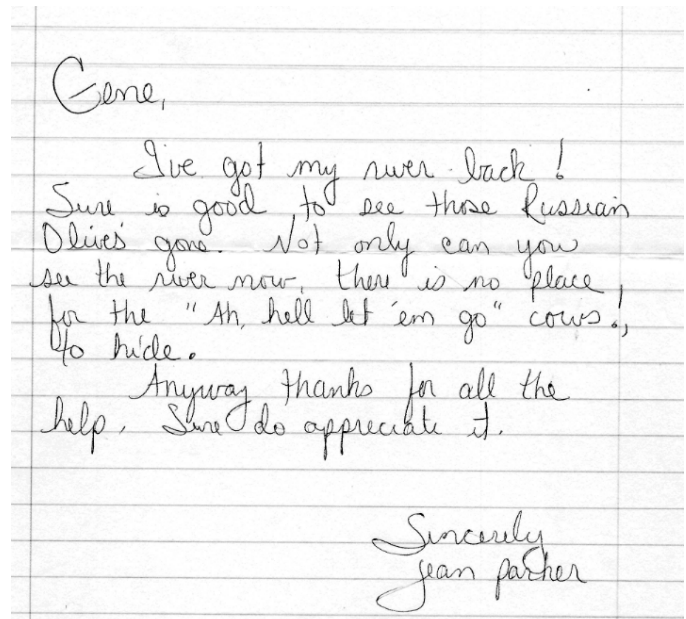 Gene,
I've got my river back!
Sure is good to see those Russian
Olives gone. Not only can you
see the river now, there is no place
for the "Ah, hell let 'em go" cows!,
to hide.
Anyway thanks for all the
help. Sure do appreciate it.
Sincerely
Jean Parker